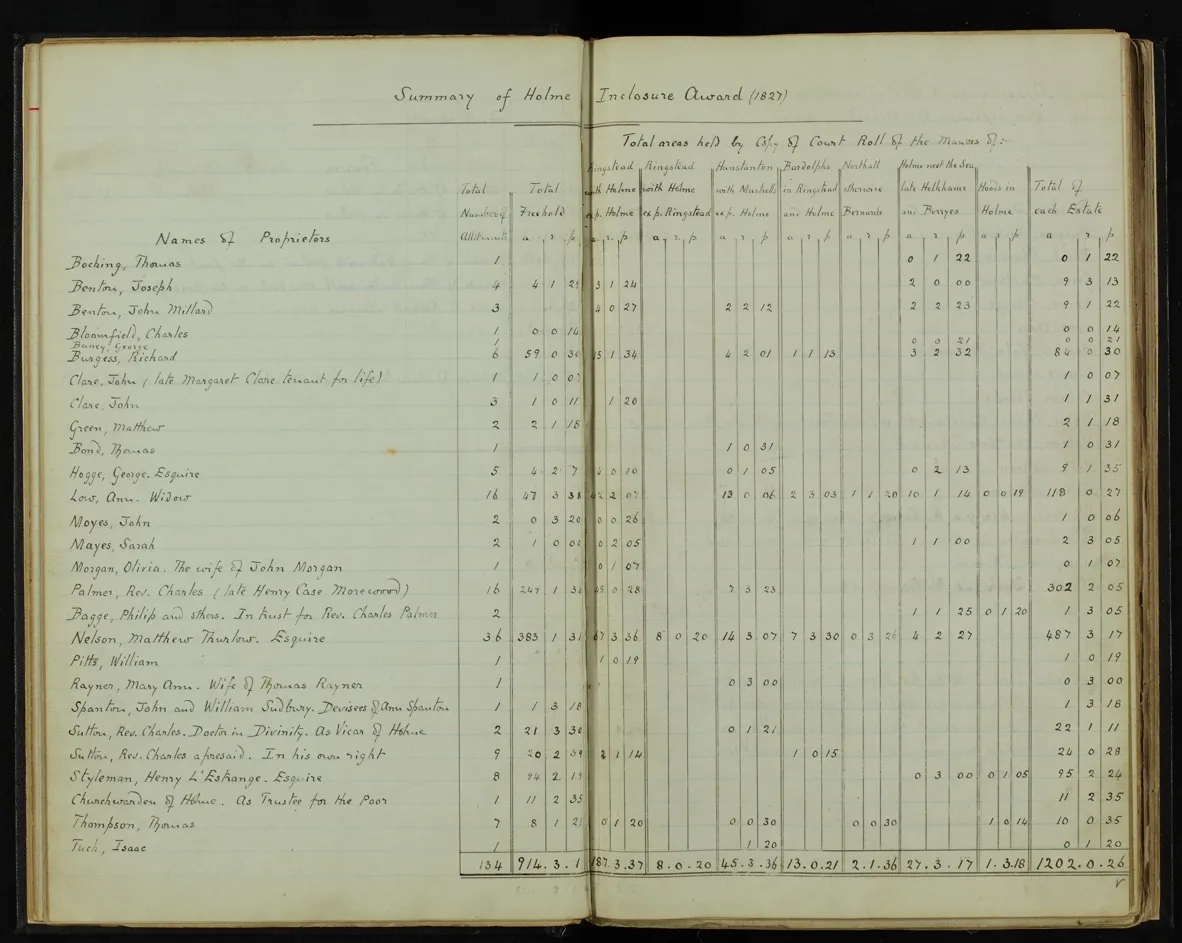 Summary of Holme Inclosure Award (1827)
Total areas held by Copy of Court Roll of the Manors of:-
Ringstead Ringstead Hunstanton Bardolphs Northall Holme next the Sea
Total Total with Holme with Holme with Mustrells in Ringstead otherwise late Holkhams Hoods in Total of
Number of Freehold exp. Holme exp. Ringstead exp. Holme and Holme Bernards and Berryes Holme each Estate
Names of Proprietors Allotments a r p a r p a r p a r p a r p a r p a r p a r p a r p
Bocking, Thomas 1 0 1 22 0 1 22
Benton, Joseph 4 4 1 29 3 1 24 2 0 00 9 3 13
Benton, John Millard 3 4 0 27 2 2 12 2 2 23 9 1 22
Bloomfield, Charles 1 0 0 14 0 0 14
George 1 0 0 21 0 0 21
Burgess, Richard 6 59 0 30 15 1 34 4 2 01 1 1 13 3 2 32 84 0 30
Clare, John (late Margaret Clare tenant for life) 1 1 0 07 1 0 07
Clare, John 3 1 0 11 1 20 1 1 31
Green, Matthew 2 2 1 18 2 1 18
Bond, Thomas 1 1 0 31 1 0 31
Hogge, George. Esquire 5 4 2 7 4 0 10 0 1 05 0 2 13 9 1 35
Low, Ann. Widow 16 47 3 38 42 2 07 13 0 06 2 3 03 1 1 20 10 1 14 0 0 19 118 0 27
Moyes, John 2 0 3 20 0 0 26 1 0 06
Mayes, Sarah 2 1 0 0 2 05 1 1 00 2 3 05
Morgan, Olivia. The wife of John Morgan 1 0 1 07 0 1 07
Palmer, Rev. Charles (late Henry Case Morewood) 16 249 1 45 0 28 7 3 23 302 2 05
Bagge, Philip and others. In trust for Rev. Charles Palmer 2 1 1 25 0 1 20 1 3 05
Nelson, Matthew Thurlow. Esquire 36 383 1 31 67 3 36 8 0 20 14 3 07 7 3 30 0 3 26 4 2 27 487 3 17
Pitts, William 1 1 0 19 1 0 19
Rayner, Mary Ann. Wife of Thomas Rayner 1 0 3 00 0 3 00
Spanton, John and William Sudbury. Devisees of Ann Spanton 1 1 3 18 1 3 18
Sutton, Rev. Charles. Doctor in Divinity. As Vicar of Holme 2 21 3 30 0 1 21 22 1 11
Sutton, Rev. Charles aforesaid. In his own right 9 20 2 39 2 1 14 1 0 15 24 0 28
Styleman, Henry L'Estrange. Esquire 8 94 2 19 0 3 00 0 1 05 95 2 24
Churchwarden of Holme. As Trustee for the Poor 1 11 2 35 11 2 35
Thompson, Thomas 7 8 1 21 0 1 20 0 0 30 0 0 30 1 0 14 10 0 35
Tuck, Isaac 1 1 20 0 1 20
134 914.3.1 187.3.37 8.0.20 45.3.36 13.0.21 2.1.36 27.3.17 1.3.18 1202.0.26